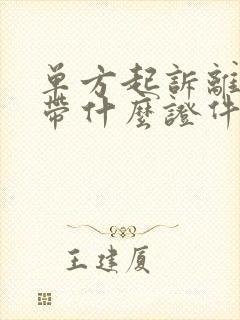 單方起訴離
帶什麼證件
王建厦